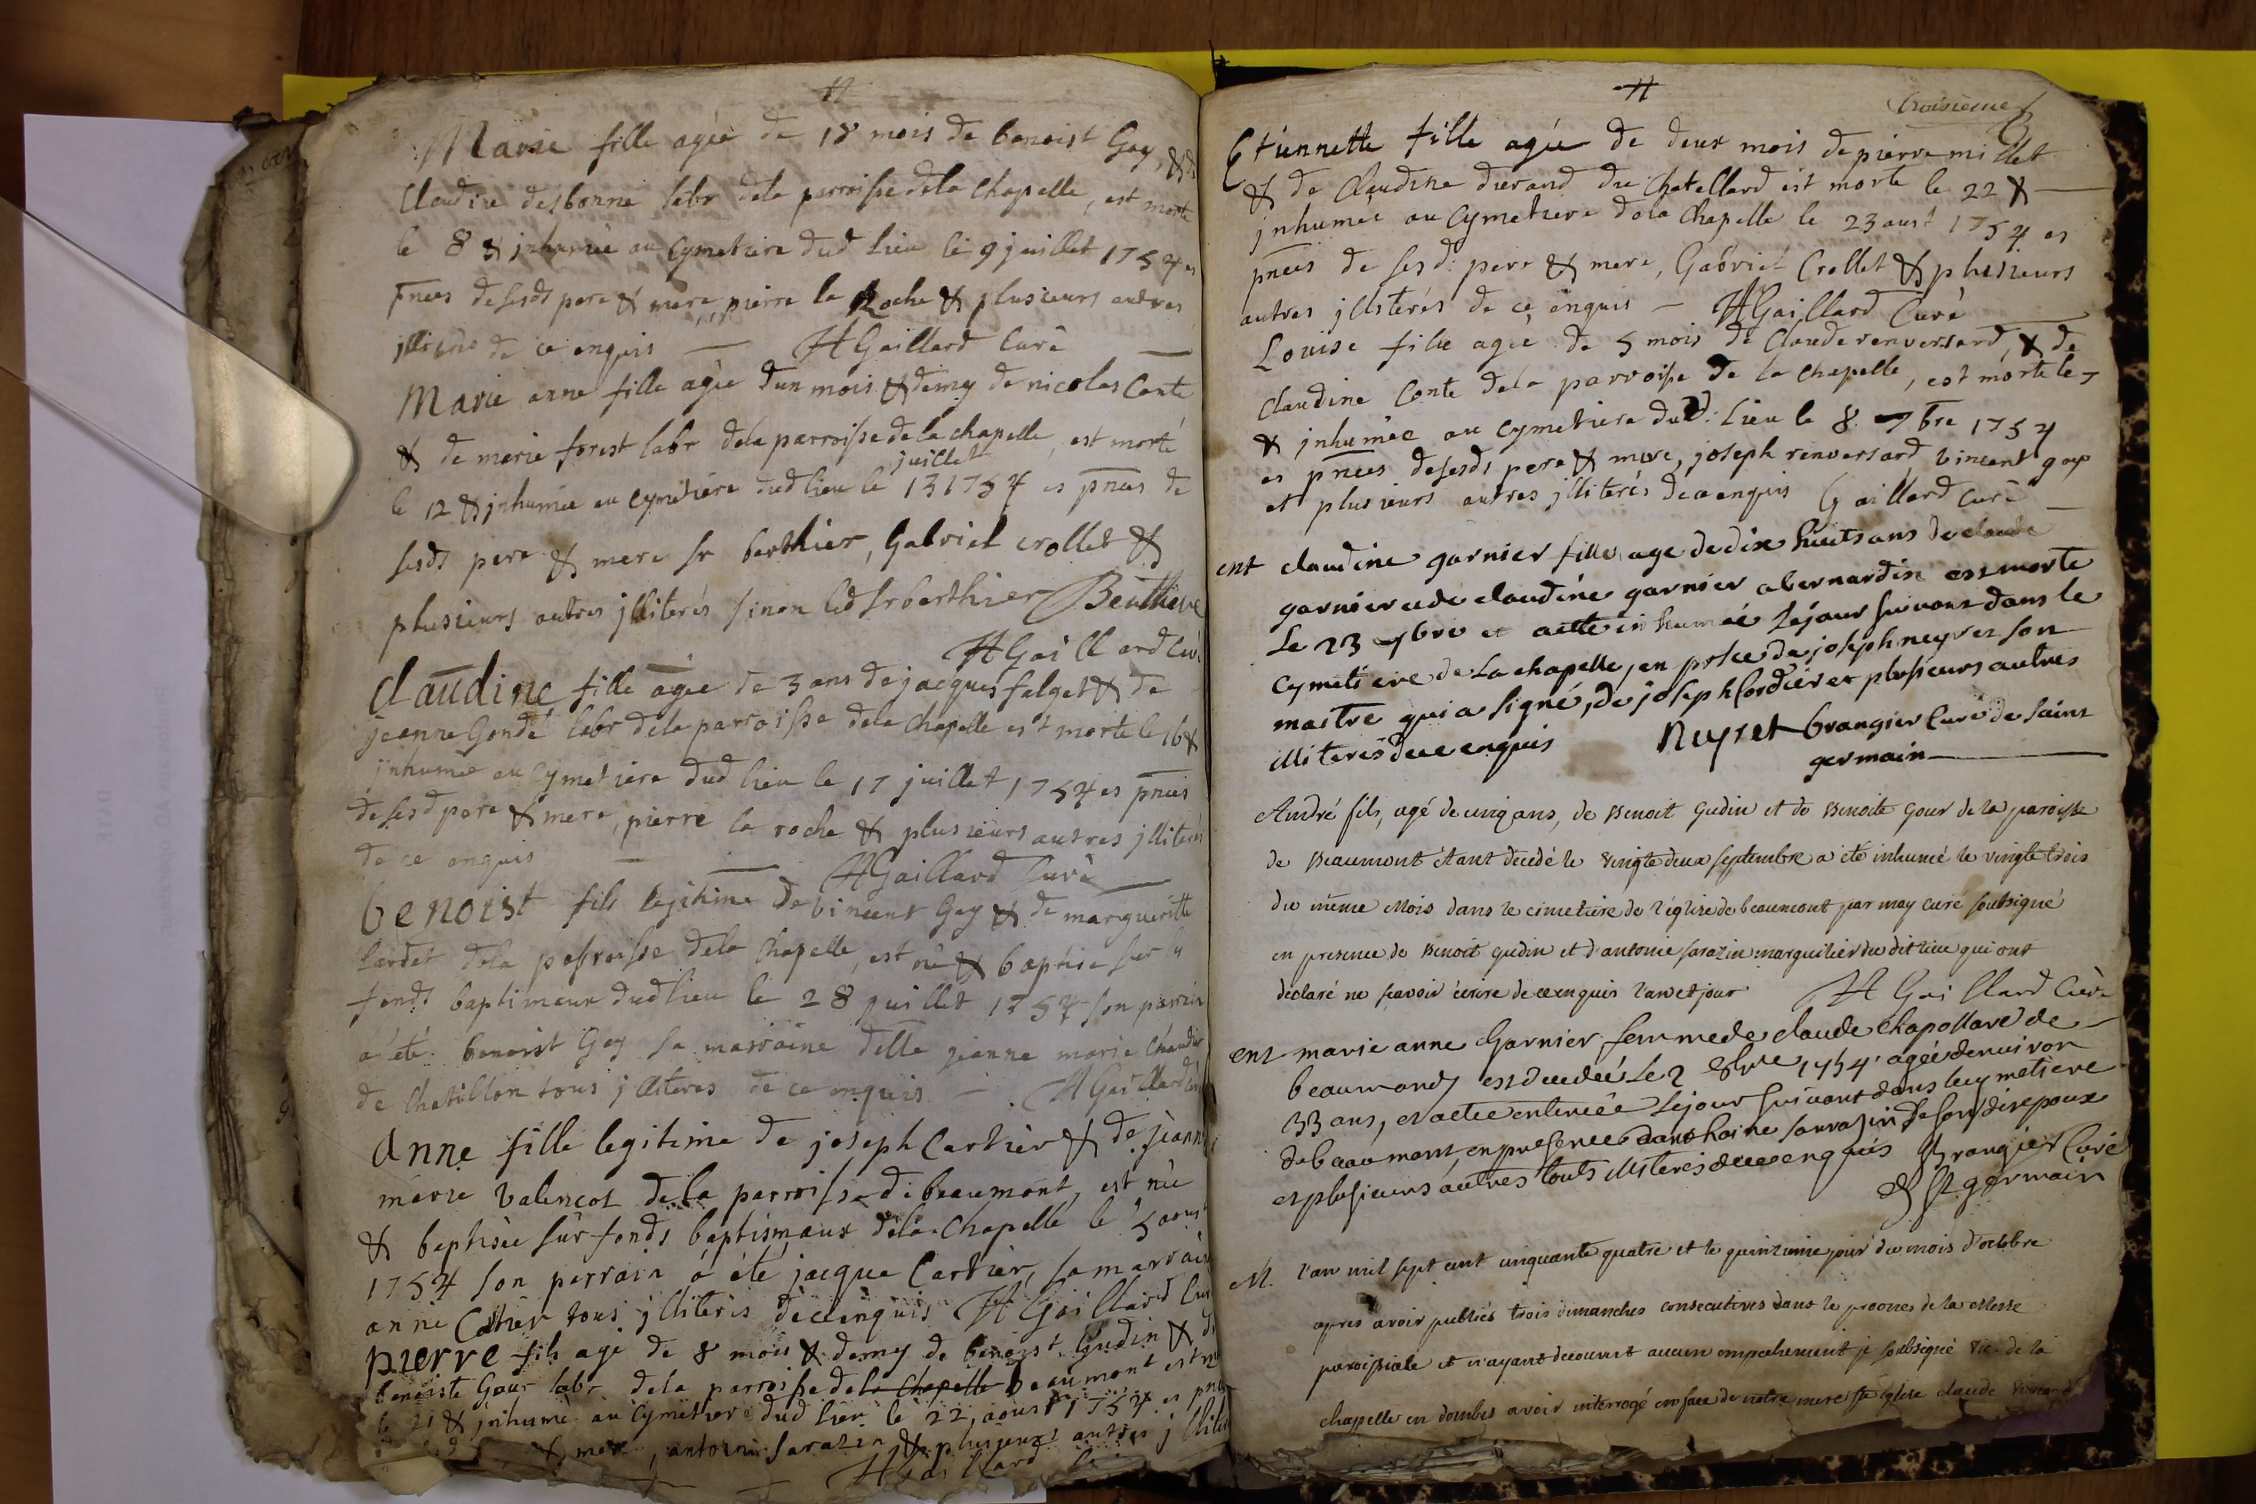 Marie fille agée de 18 mois de benoist Gay, &
Claudine desbonne labr dela parroisse dela Chapelle, est morte
le 8 & jnhumée au Cymetiere dud lieu le 9 juillet 1754 es
pnces desesds pere & mere, pierre la Roche & plusieurs autres
de ce enquis — AGaillard Curé
Marie anne fille agée d'un mois & demy de nicolas Conte
& de marie forest labr dela parroisse de la chapelle, est morte
juillet
le 12 & jnhumée au cymetiere dud lieu le 13 1754 es pnces de
sesds pere & mere sr berthier, Gabriel crollet &
plusieurs autres jlliterés sinon led sr berthier
AGaillard Curé
Claudine fille agée de 3 ans de jacques falget & de
jeanne Gondé labr dela parroisse dela Chapelle est morte le 16 &
jnhumée au Cymetiere dud lieu le 17 juillet 1754 es pnces
de sesd pere & mere, pierre la roche & plusieurs autres jlliterés
de ce enquis — AGaillard Curé
benoist fils legitime de vincent Gay & de margueritte
Lardet dela parroisse dela Chapelle, est né & baptisé sur
fonds baptimaux dud lieu le 28 juillet 1754 son parrin
a été benoist Gay sa marraine delle jeanne marie
de Chatillon tous jlliteres de ce enquis — AGaillard
Anne fille legitime de joseph Cartier & de jeanne
marie Valencot dela parroisse de beaumont, est née
& baptisée sur fonds baptismaux dela Chapelle le 5 aoust
1754 son parrain a été jacque Cartier, sa marraine
anne tous jlliterés de ce enquis AGaillard Curé
pierre fils agé de 8 mois & demy de benoist Gudin & de
benoiste Gour labr dela parroisse dela Chapelle beaumont est
le 21 & jnhumé au Cymetier dud lieu le 22 aoust 1754 es pnces
& mere, antoine sarazin & plusieurs autres
AGaillard
troisieme
Etiennette fille agée de deux mois de pierre millet
& de Claudine durand du Chatellard est morte le 22 & —
jnhumée au Cymetiere dela Chapelle le 23 aust 1754 es
pnces de sesd. pere & mere, Gabriel Crollet & plusieurs
autres jlliterés de ce enquis — AGaillard Curé
Louise fille agée de 5 mois de Claude renversard, & de
Claudine Conte dela parroisse de la Chapelle, est morte le 7
& jnhumée au cymetiere dud. lieu le 8. 7bre 1754
es pnces desesds pere & mere, joseph renversard, vincent gay
et plusieurs autres jlliterés de ce enquis Gaillard Curé —
ent claudine garnier fille age de dix huits ans de claude
garnier et de claudine garnier a bernardin est morte
Le 23 7bre et a etté inhumée le jour suivant dans le
cymetiere de La chapelle, en pnce de joseph neyret son
maitre qui a signé, de joseph Cordier et plusieurs autres
illiterés de ce enquis Neyret brangier Curé de saint
germain —
André fils, agé de cinq ans, de Benoit Gudin et de Benoite Gour de la paroisse
de Beaumont étant decedé le vingte deux septembre a été inhumé le vingte trois
du même Mois dans le cimetiere de l'église de beaumont par moy curé soubsigné
en presence de Benoit gudin et d'antoine sarazin marguilier du dit lieu qui ont
declaré ne sçavoir écrire de ce enquis l'an et jour AGaillard Curé
ent marie anne Garnier femme de claude chapollard de
beaumond est decedée Le 2 8bre 1754 agée denviron
33 ans, et a etée enterrée le jour suivant dans le cymetiere
de beaumont en presence danthoine sarrasin de son dit epoux
et plusieurs autres touts illiterés de ce enquis Brangier Curé
de St germain
M. l'an mil sept cent cinquante quatre et le quinzieme jour du mois d'octobre
apres avoir publiés trois dimanches consecutives dans le prones de la Messe
paroissiale et n'ayant decouvert aucun empechement je soubsigné vic. de la
chappelle en dombes avoir interrogé en face de notre mere Ste Eglise claude